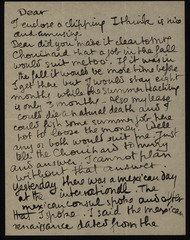 Dear
I enclose a clipping I think is nice
and amusing.
Dear did you make it clear to Mr
Chouinard that a job in the fall
would suit me too. If it was in
the fall it would be more time before
I get there but I would stay eight
months while the summer teaching
is only 3 months. Also my lease
could die a natural death and I
could her some summer job here
not to loose the money. Well
any or both would suit me. Just
tell the Chouinard to hurry
and answer. I cannot plan
without that answer.
Yesterday there was a mexican day
at the International. The
mexican consul spoke and after
that I spoke. I said the mexican
renaissance dated from the